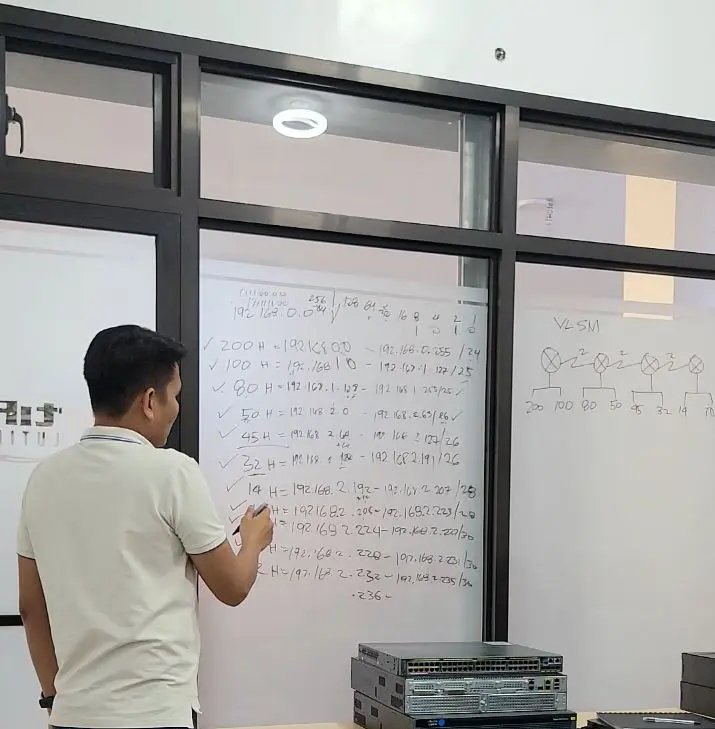 11111100
256 128 64 32 16 8 4 2 1
192.168.0.0 1 0 1 0
200 H = 192.168.0.0 - 192.168.0.255 /24
100 H = 192.168.1.0 - 192.168.1.127 /25
80 H = 192.168.1.128 - 192.168.1.255/25
50 H = 192.168.2.0 - 192.168.2.63/26
45 H = 192.168.2.64 - 192.168.2.127/26
32 H = 192.168.2.128 - 192.168.2.191/26
14 H = 192.168.2.192 - 192.168.2.207 /28
H = 192.168.2.208 - 192.168.2.223/28
= 192.168.2.224 - 192.168.2.227/30
H = 192.168.2.228 - 192.168.2.231/30
2 H = 192.168.2.232 - 192.168.2.235/30
.236 -
VLSM
2 2 2
200 100 80 50 45 32 14